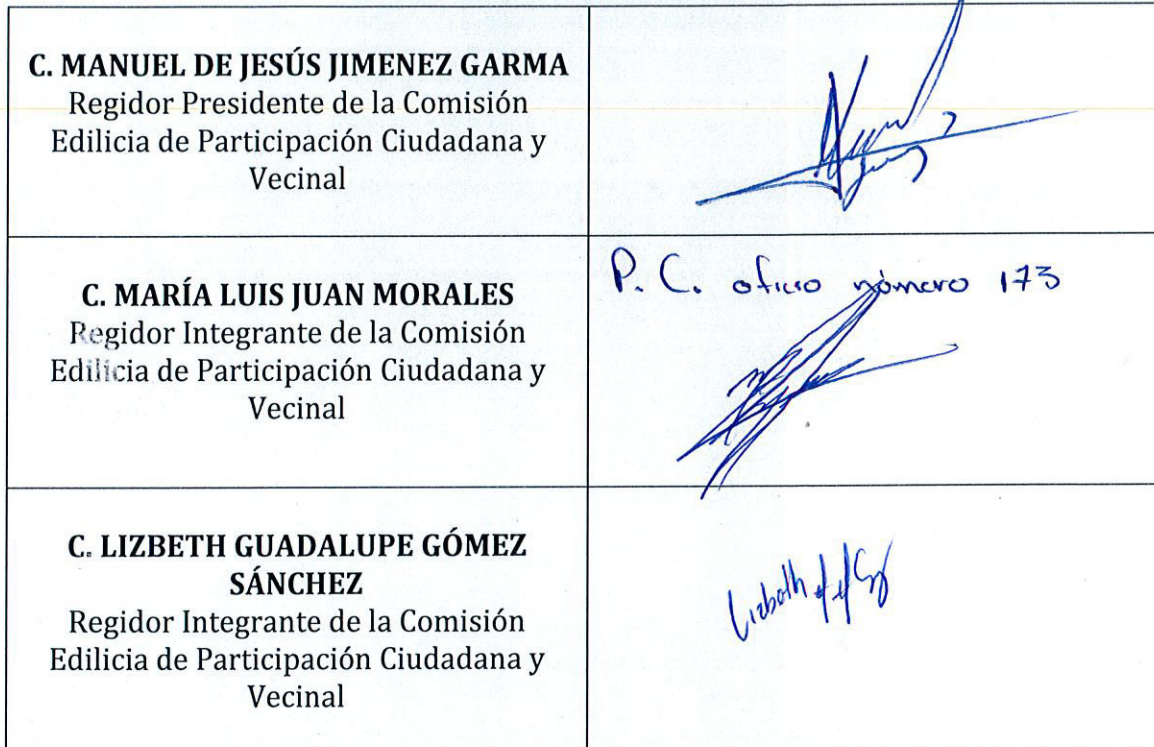 C. MANUEL DE JESÚS JIMENEZ GARMA
Regidor Presidente de la Comisión
Edilicia de Participación Ciudadana y
Vecinal
C. MARÍA LUIS JUAN MORALES
Regidor Integrante de la Comisión
Edilicia de Participación Ciudadana y
Vecinal
P. C. oficio número 173
C. LIZBETH GUADALUPE GÓMEZ
SÁNCHEZ
Regidor Integrante de la Comisión
Edilicia de Participación Ciudadana y
Vecinal
Lizbeth